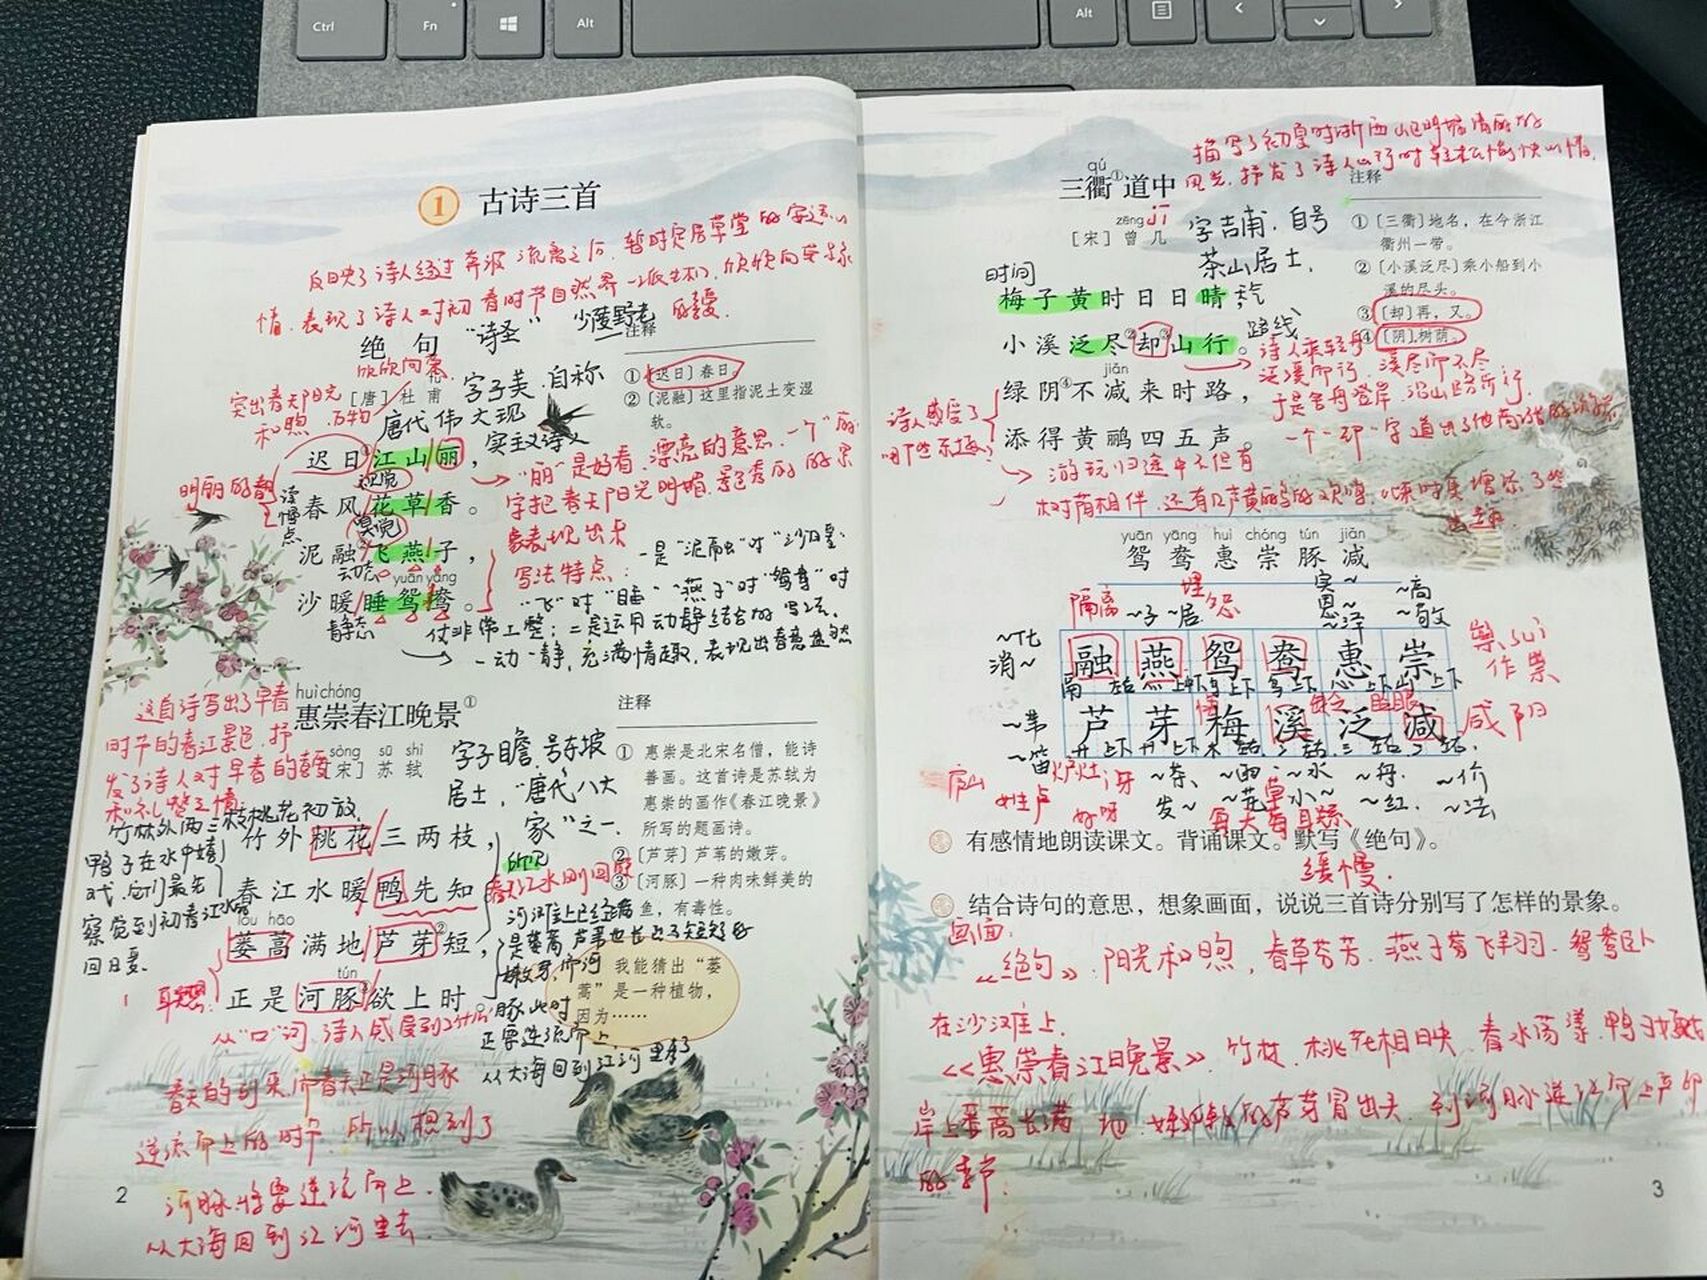 Ctrl
Fn
Alt
Alt
1 古诗三首
反映了诗人经过奔波流离之后,暂时定居草堂的安适心
情,表现了诗人对初春时节自然界一派生机、欣欣向荣
绝句
“诗圣”
少陵野老
欣欣向荣
[唐] 杜甫
字子美,自称
唐代伟大现
实主义诗人
突出春天阳光
和煦,万物
迟日江山丽,
视觉
春风花草香。
嗅觉
泥融飞燕子,
动态
yuān yāng
沙暖睡鸳鸯。
静态
读慢点
注释
① [迟日]春日。
② [泥融]这里指泥土变湿
软。
“丽”是好看、漂亮的意思,一个“丽”
字把春天阳光明媚、景色秀丽的景
象表现出来
写法特点:
一是“泥融”对“沙暖”
“飞”对“睡”“燕子”对“鸳鸯”对
仗非常工整;二是运用动静结合的写法,
一动一静,充满情趣,表现出春意盎然
huì chóng
惠崇春江晚景①
sòng sū shì
[宋] 苏轼
字子瞻,号东坡
居士,“唐代八大
家”之一.
这首诗写出了早春
时节的春江景色,抒
发了诗人对早春的喜爱
和礼赞之情
竹林外两三枝桃花初放,
鸭子在水中嬉
戏,它们最先
察觉到初春江水的
回日暖.
竹外桃花三两枝,
春江水暖鸭先知。
lóu hāo
蒌蒿满地芦芽②短,
tún
正是河豚③欲上时。
注释
① 惠崇是北宋名僧,能诗
善画。这首诗是苏轼为
惠崇的画作《春江晚景》
所写的题画诗。
② [芦芽]芦苇的嫩芽。
③ [河豚]一种肉味鲜美的
鱼,有毒性。
我能猜出“蒌
蒿”是一种植物,
因为……
豚此时
正要逆流而上
从大海回到江河里来了
春天的到来,而春天正是河豚
逆流而上的时节,所以想到了
河豚将要逆流而上,
从大海回到江河里去
2
描写了初夏时浙西山区明媚清丽的
风光,抒发了诗人山行时轻松愉快心情.
qú
三衢①道中
zēng jī
[宋] 曾几
字吉甫,自号
茶山居士.
时间
梅子黄时日日晴,
天气
小溪泛尽②却③山行。
路线
jiǎn
绿阴④不减来时路,
添得黄鹂四五声。
注释
① [三衢]地名,在今浙江
衢州一带。
② [小溪泛尽]乘小船到小
溪的尽头。
③ [却]再,又。
④ [阴]树荫。
诗人乘轻舟
泛溪而行,溪尽而不尽
于是舍舟登岸,沿山路前行,
诗人感受了
哪些乐趣?
游玩归途中不但有
树荫相伴,还有几声黄鹂的欢鸣
yuān yāng huì chóng tún jiǎn
鸳鸯惠崇豚减
隔离
~子 ~居
埋怨
恩~
~泽
~高
~敬
~化
消~
融燕鸳鸯惠崇
崇
作祟
芦芽梅溪泛减
~苇
~笛
咸阳
庐山
炉灶
牙
姓卢
好呀
~茶
发~
~雨
~花
~水
小~
~舟
~红
~价
~法
有感情地朗读课文。背诵课文。默写《绝句》。
缓慢.
结合诗句的意思,想象画面,说说三首诗分别写了怎样的景象。
画面:
《绝句》:阳光和煦,春草芬芳,燕子翩飞,鸳鸯卧
在沙滩上.
《惠崇春江晚景》:竹枝、桃花相映,春水荡漾,鸭子嬉戏
岸上蒌蒿长满地,嫩嫩的芦芽冒出头,到河豚逆江而上产卵
的季节.
3